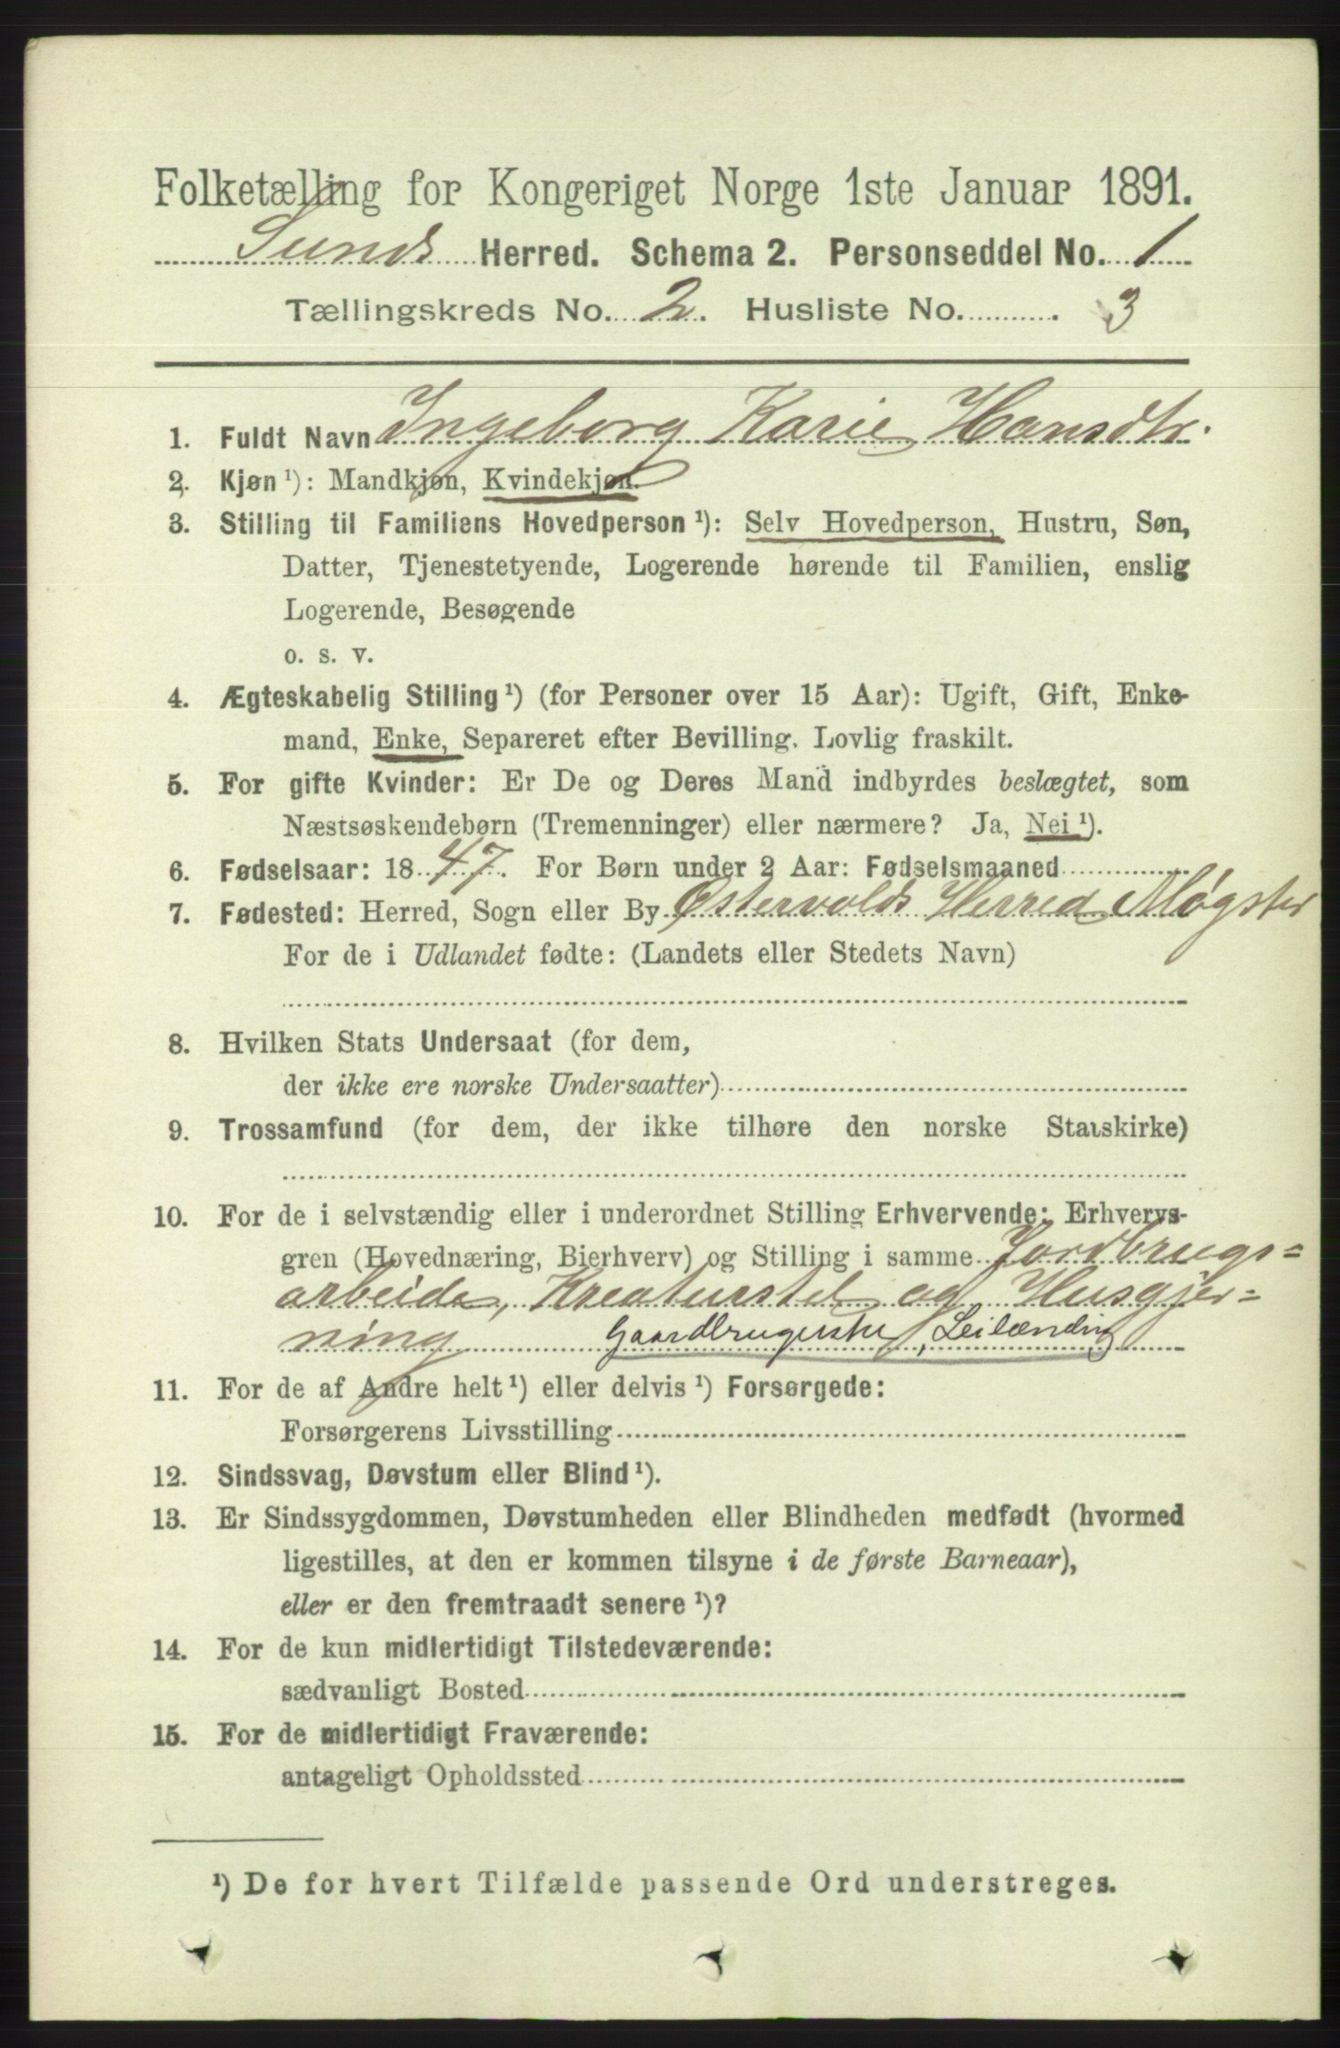 Folketælling for Kongeriget Norge 1ste Januar 1891.
Sunds Herred. Schema 2. Personseddel No. 1
Tællingskreds No. 2. Husliste No. 3
1. Fuldt Navn Ingeborg Karie Hansdtr.
2. Kjøn ¹): Mandkjøn, Kvindekjøn.
3. Stilling til Familiens Hovedperson ¹): Selv Hovedperson, Hustru, Søn,
Datter, Tjenestetyende, Logerende hørende til Familien, enslig
Logerende, Besøgende
o. s. v.
4. Ægteskabelig Stilling ¹) (for Personer over 15 Aar): Ugift, Gift, Enke-
mand, Enke, Separeret efter Bevilling. Lovlig fraskilt.
5. For gifte Kvinder: Er De og Deres Mand indbyrdes beslægtet, som
Næstsøskendebørn (Tremenninger) eller nærmere? Ja, Nei ¹).
6. Fødselsaar: 1847. For Børn under 2 Aar: Fødselsmaaned
7. Fødested: Herred, Sogn eller By Østervolds Herred Møgster
For de i Udlandet fødte: (Landets eller Stedets Navn)
8. Hvilken Stats Undersaat (for dem,
der ikke ere norske Undersaatter)
9. Trossamfund (for dem, der ikke tilhøre den norske Statskirke)
10. For de i selvstændig eller i underordnet Stilling Erhvervende: Erhvervs-
gren (Hovednæring, Bierhverv) og Stilling i samme Jordbrugs=
arbeide, Kreaturstel og Husgjer=
ning Gaardbrugerske, Leilænding
11. For de af Andre helt ¹) eller delvis ¹) Forsørgede:
Forsørgerens Livsstilling
12. Sindssvag, Døvstum eller Blind ¹).
13. Er Sindssygdommen, Døvstumheden eller Blindheden medfødt (hvormed
ligestilles, at den er kommen tilsyne i de første Barneaar),
eller er den fremtraadt senere ¹)?
14. For de kun midlertidigt Tilstedeværende:
sædvanligt Bosted
15. For de midlertidigt Fraværende:
antageligt Opholdssted
¹) De for hvert Tilfælde passende Ord understreges.